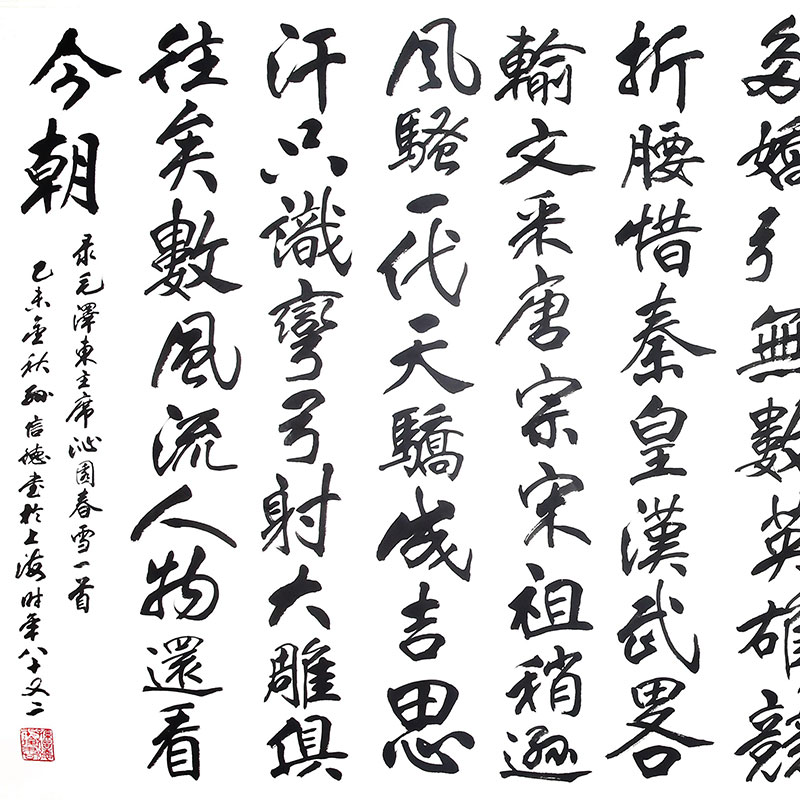 多嬌引無數英雄競
折腰惜秦皇漢武畧
輸文采唐宗宋祖稍遜
風騷一代天驕成吉思
汗只識彎弓射大雕俱
往矣數風流人物還看
今朝
录毛澤東主席沁園春雪一首
己未金秋孙信德书於上海时年八十又二